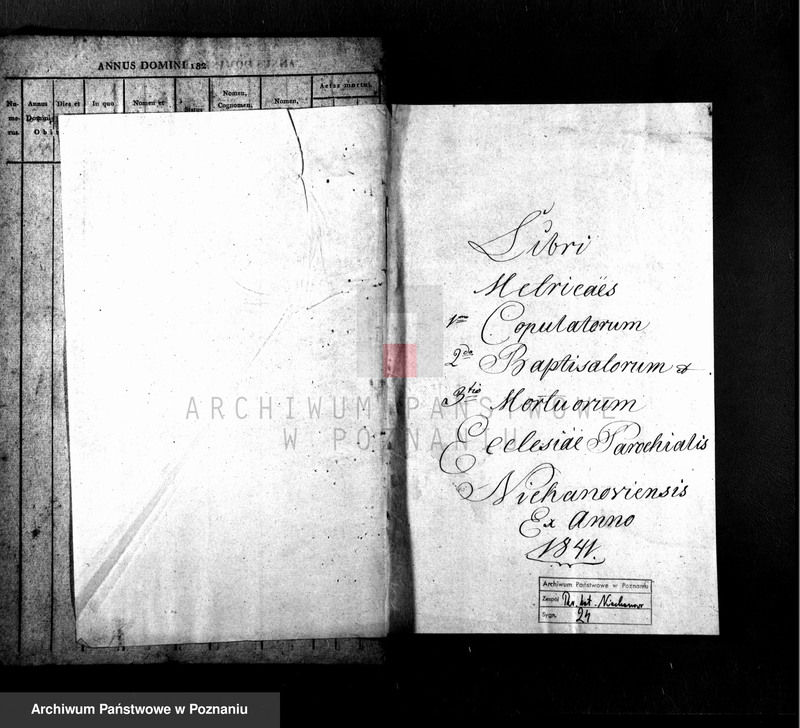 ANNUS DOMINI 182
Nu-
me-
rus
Annus
Domini
Dies et
In quo
Nomen et
Status
Nomen,
Cognomen,
Nomen,
Aetas mortui,
Obi
Libri
Metricaës
1mo Copulatorum
2do Baptisatorum et
3tio Mortuorum
Eclesiae Parochialis
Niehanoviensis
Ex Anno
1841.
ARCHIWUM PAŃSTWOWE
W POZNANIU
Archiwum Państwowe w Poznaniu
Zespół Par. kat. Niechanowo
Sygn. 24
Archiwum Państwowe w Poznaniu